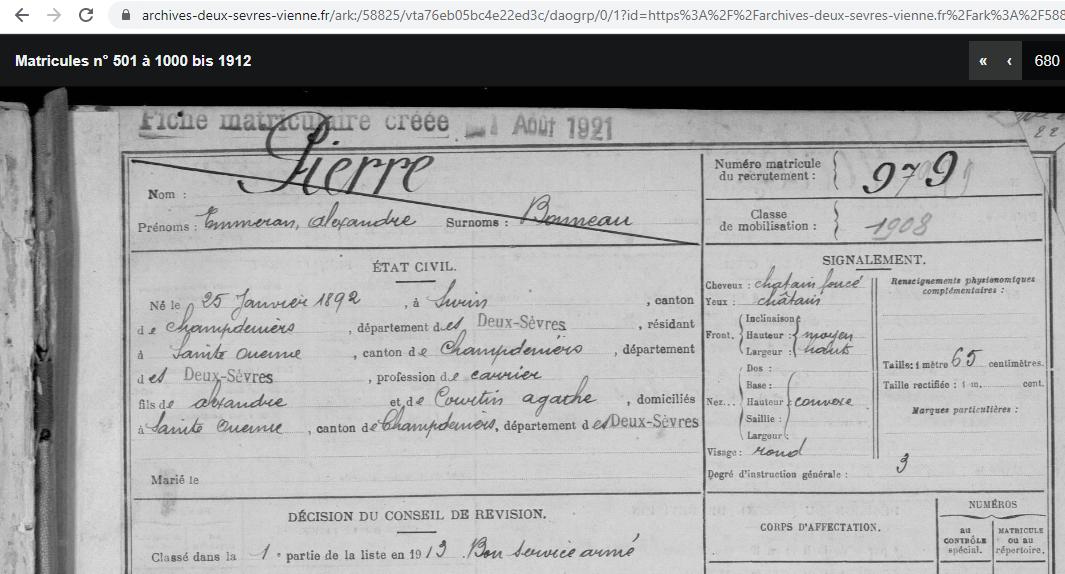 archives-deux-sevres-vienne.fr/ark:/58825/vta76eb05bc4e22ed3c/daogrp/0/1?id=https%3A%2F%2Farchives-deux-sevres-vienne.fr%2Fark%3A%2F588
Matricules n° 501 à 1000 bis 1912
« ‹ 680
Fiche matriculaire créée 1 Août 1921
Nom : Pierre
Prénoms : Emmeran, alexandre Surnoms : Bonneau
Numéro matricule du recrutement : 979
Classe de mobilisation : 1908
ÉTAT CIVIL.
Né le 25 Janvier 1892, à Surin, canton
de Champdeniers, département des Deux-Sèvres, résidant
à Sainte Ouenne, canton de Champdeniers, département
des Deux-Sèvres, profession de carrier
fils de alexandre et de Courtin agathe, domiciliés
à Sainte Ouenne, canton de Champdeniers, département des Deux-Sèvres
Marié le
SIGNALEMENT.
Cheveux : chatain foncé
Yeux : châtain
Front. Inclinaison
Hauteur : moyen
Largeur : haut
Nez... Dos :
Base :
Hauteur : convexe
Saillie :
Largeur :
Visage : rond
Renseignements physionomiques complémentaires :
Taille : 1 mètre 65 centimètres.
Taille rectifiée : 1 m. cent.
Marques particulières :
Degré d'instruction générale : 3
DÉCISION DU CONSEIL DE REVISION.
Classé dans la 1e partie de la liste en 1913 Bon service armé
CORPS D'AFFECTATION.
NUMÉROS
au CONTRÔLE spécial.
MATRICULE ou au répertoire.